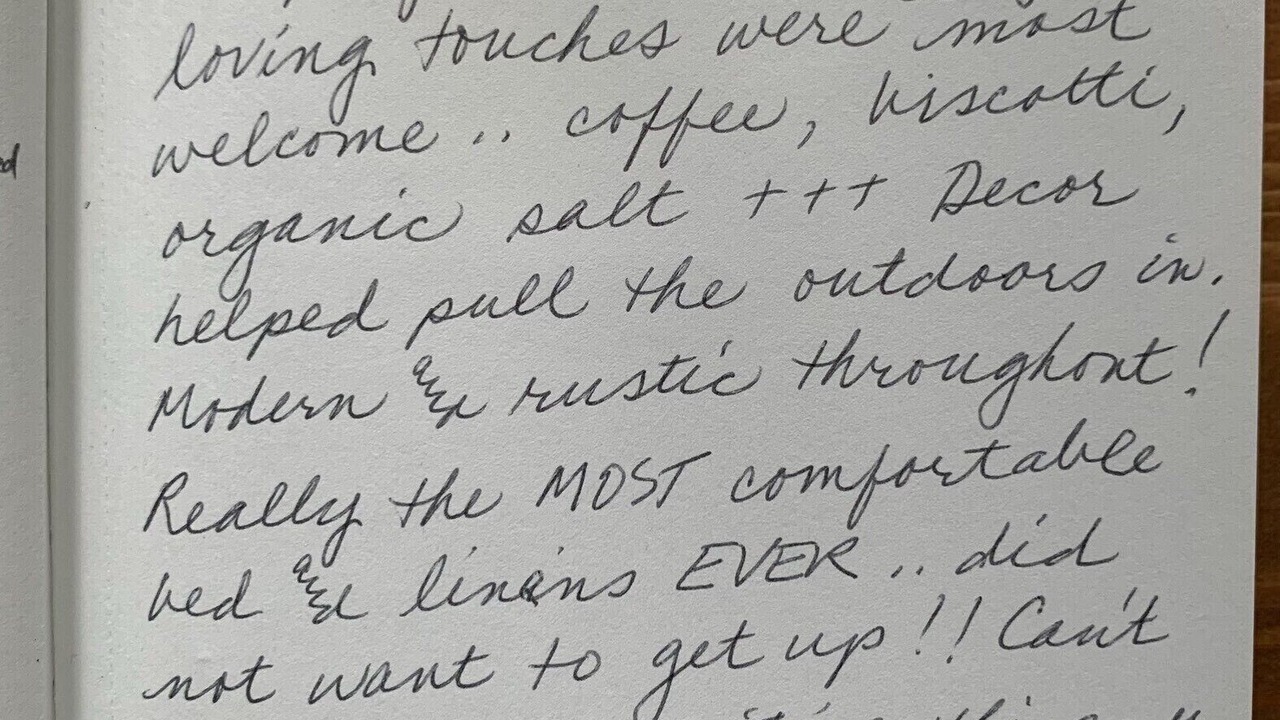 loving touches were most
welcome .. coffee, biscotti,
organic salt +++ Decor
helped pull the outdoors in.
Modern & rustic throughout!
Really the MOST comfortable
bed & linens EVER .. did
not want to get up!! Can't